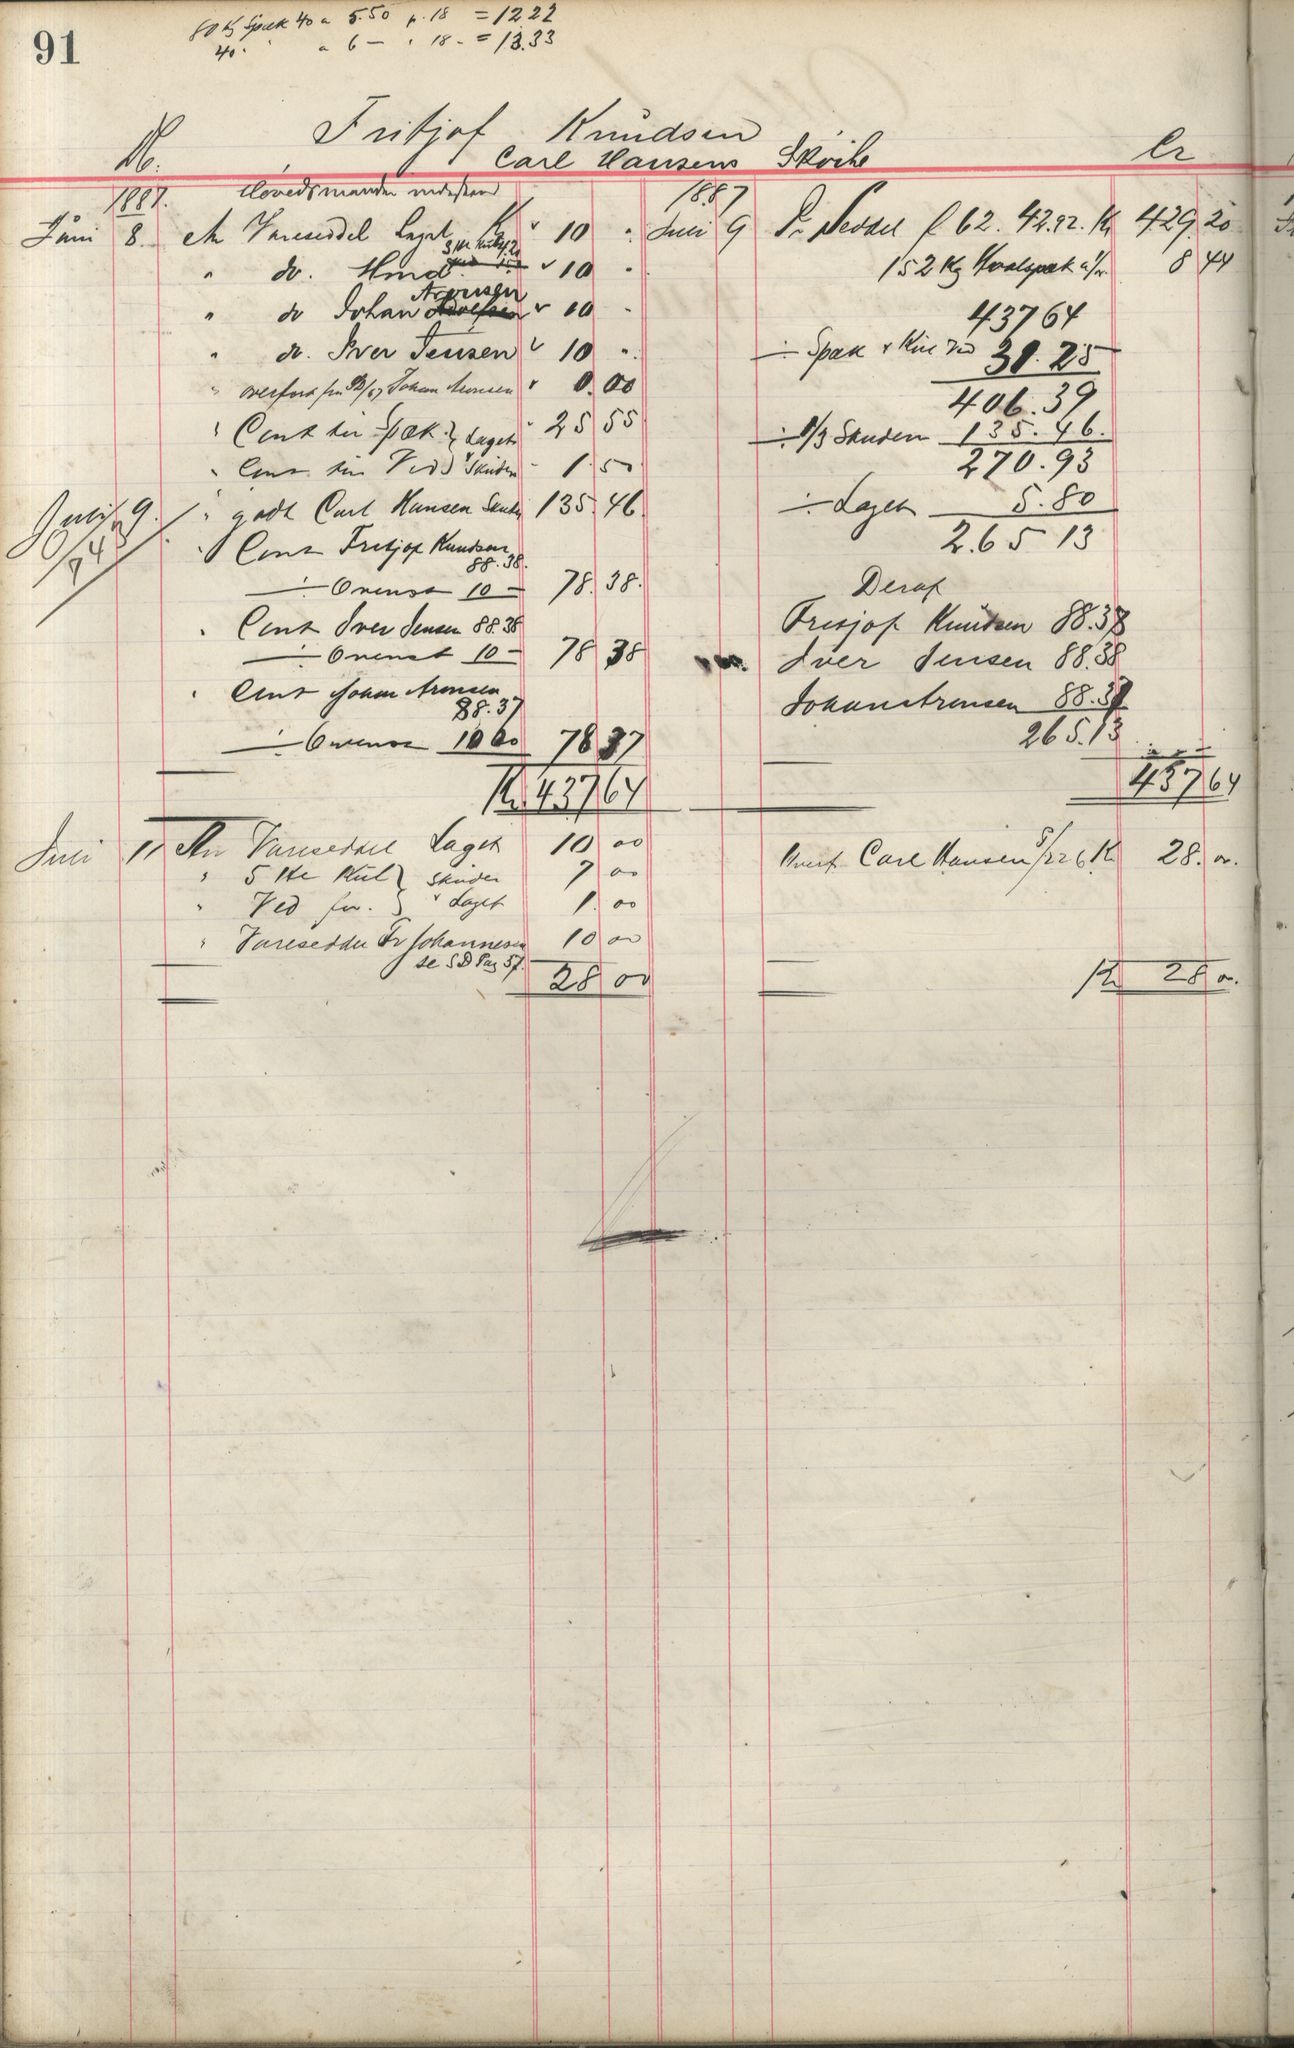 91
80 Kg Spæk 40 a 5.50 p. 18 = 12 22
40 " a 6 — " 18 - = 13.33
Fritjof Knudsen
Dr. Carl Hansens Skøite Cr
1887. Hovedsmanden
Juni 8. An Vareseddel Laget K 10 "
" do. Hmd. 10 "
" do Johan Aronsen 10 -
" do. Iver Jensen 10 "
" overført fra Johan Aronsen 0.00
" Cont. für Spæk } Laget 25 55
" Cont. für Ved } & Skuden 1.50
Juli 9. " godt Carl Hansen Skøite 135.46
943
" Cont Fritjof Knudsen
88.38.
÷ Ovenst 10 — 78.38.
" Cont Iver Jensen 88.38
÷ Ovenst 10 — 78 38
" Cont Johan Aronsen
88.37
÷ Ovenst 10 00 78 37
Kr. 437 64
Juli 11 An Vareseddel Laget 10 00
" 5 Hl Kul } Skuden 7 00
" Ved for. } & Laget 1.00
" Vareseddel Fr Johannesen 10 00
se SD Pag 57.
28 00
1887
Juli 9 Pr Seddel f 62. 4292. Kr 429.20
152 Kg Hvalspæk a 1/ 8 44
437 64
÷ Spæk & Kul Ved 31.25
406.39
÷ 1/3 Skuden 135.46.
270.93
÷ Laget 5.80
265 13
Deraf
Fritjof Knudsen 88.38
Iver Jensen 88.38
Johan Aronsen 88.37
265.13
437 64
Overf Carl Hansen Kr 28.00.
Kr 28 00.